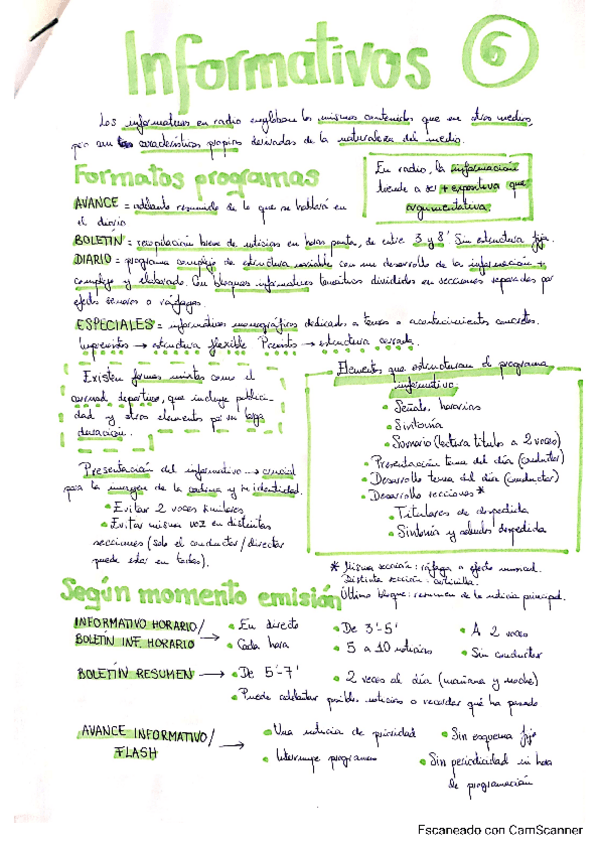 Informativos 6
Los informativos en radio engloban los mismos contenidos que en otros medios,
pero con las características propias derivadas de la naturaleza del medio.
Formatos programas
En radio, la información
tiende a ser + expositiva que
argumentativa.
AVANCE = adelanto resumido de lo que se hablará en
el diario
BOLETÍN = recopilación breve de noticias en horas puntas, de entre 3 y 8' Sin estructura fija.
DIARIO = programa complejo de estructura variable con un desarrollo de la información +
complejo y elaborado. Con bloques informativos temáticos divididos en secciones separadas por
efecto sonoros o ráfagas.
ESPECIALES = informativos monográficos dedicados a temas o acontecimientos concretos.
Imprevistos → estructura flexible Previstos → estructura cerrada.
Existen formas mixtas como el
carrusel deportivo, que incluye publici-
dad y otros elementos por su larga
duración.
Elementos que estructuran el programa
informativo:
• Señales horarias
• Sintonía
• Sumario (lectura titulos a 2 voces)
• Presentación tema del día (conductor)
• Desarrollo tema del día (conductor)
• Desarrollo secciones *
• Titulares de despedida
• Sintonía y saludos despedida
Presentación del informativo → crucial
para la imagen de la cadena y su identidad.
• Evitar 2 voces similares
• Evitar misma voz en distintas
secciones (solo el conductor/director
puede estar en todas).
* Misma sección: ráfaga o efecto musical.
Distinta sección: cortinilla.
Último bloque: resumen de la noticia principal.
Según momento emisión
INFORMATIVO HORARIO/
BOLETÍN INF. HORARIO →
• En directo
• Cada hora
• De 3'-5'
• 5 a 10 noticias
• A 2 voces
• Sin conductor
BOLETÍN RESUMEN →
• De 5'-7'
• 2 veces al día (mañana y noche)
• Puede adelantar posible noticias o recordar qué ha pasado
AVANCE INFORMATIVO/
FLASH →
• Una noticia de prioridad
• Interrumpe programas
• Sin esquema fijo
• Sin periodicidad ni hora
de programación
Escaneado con CamScanner